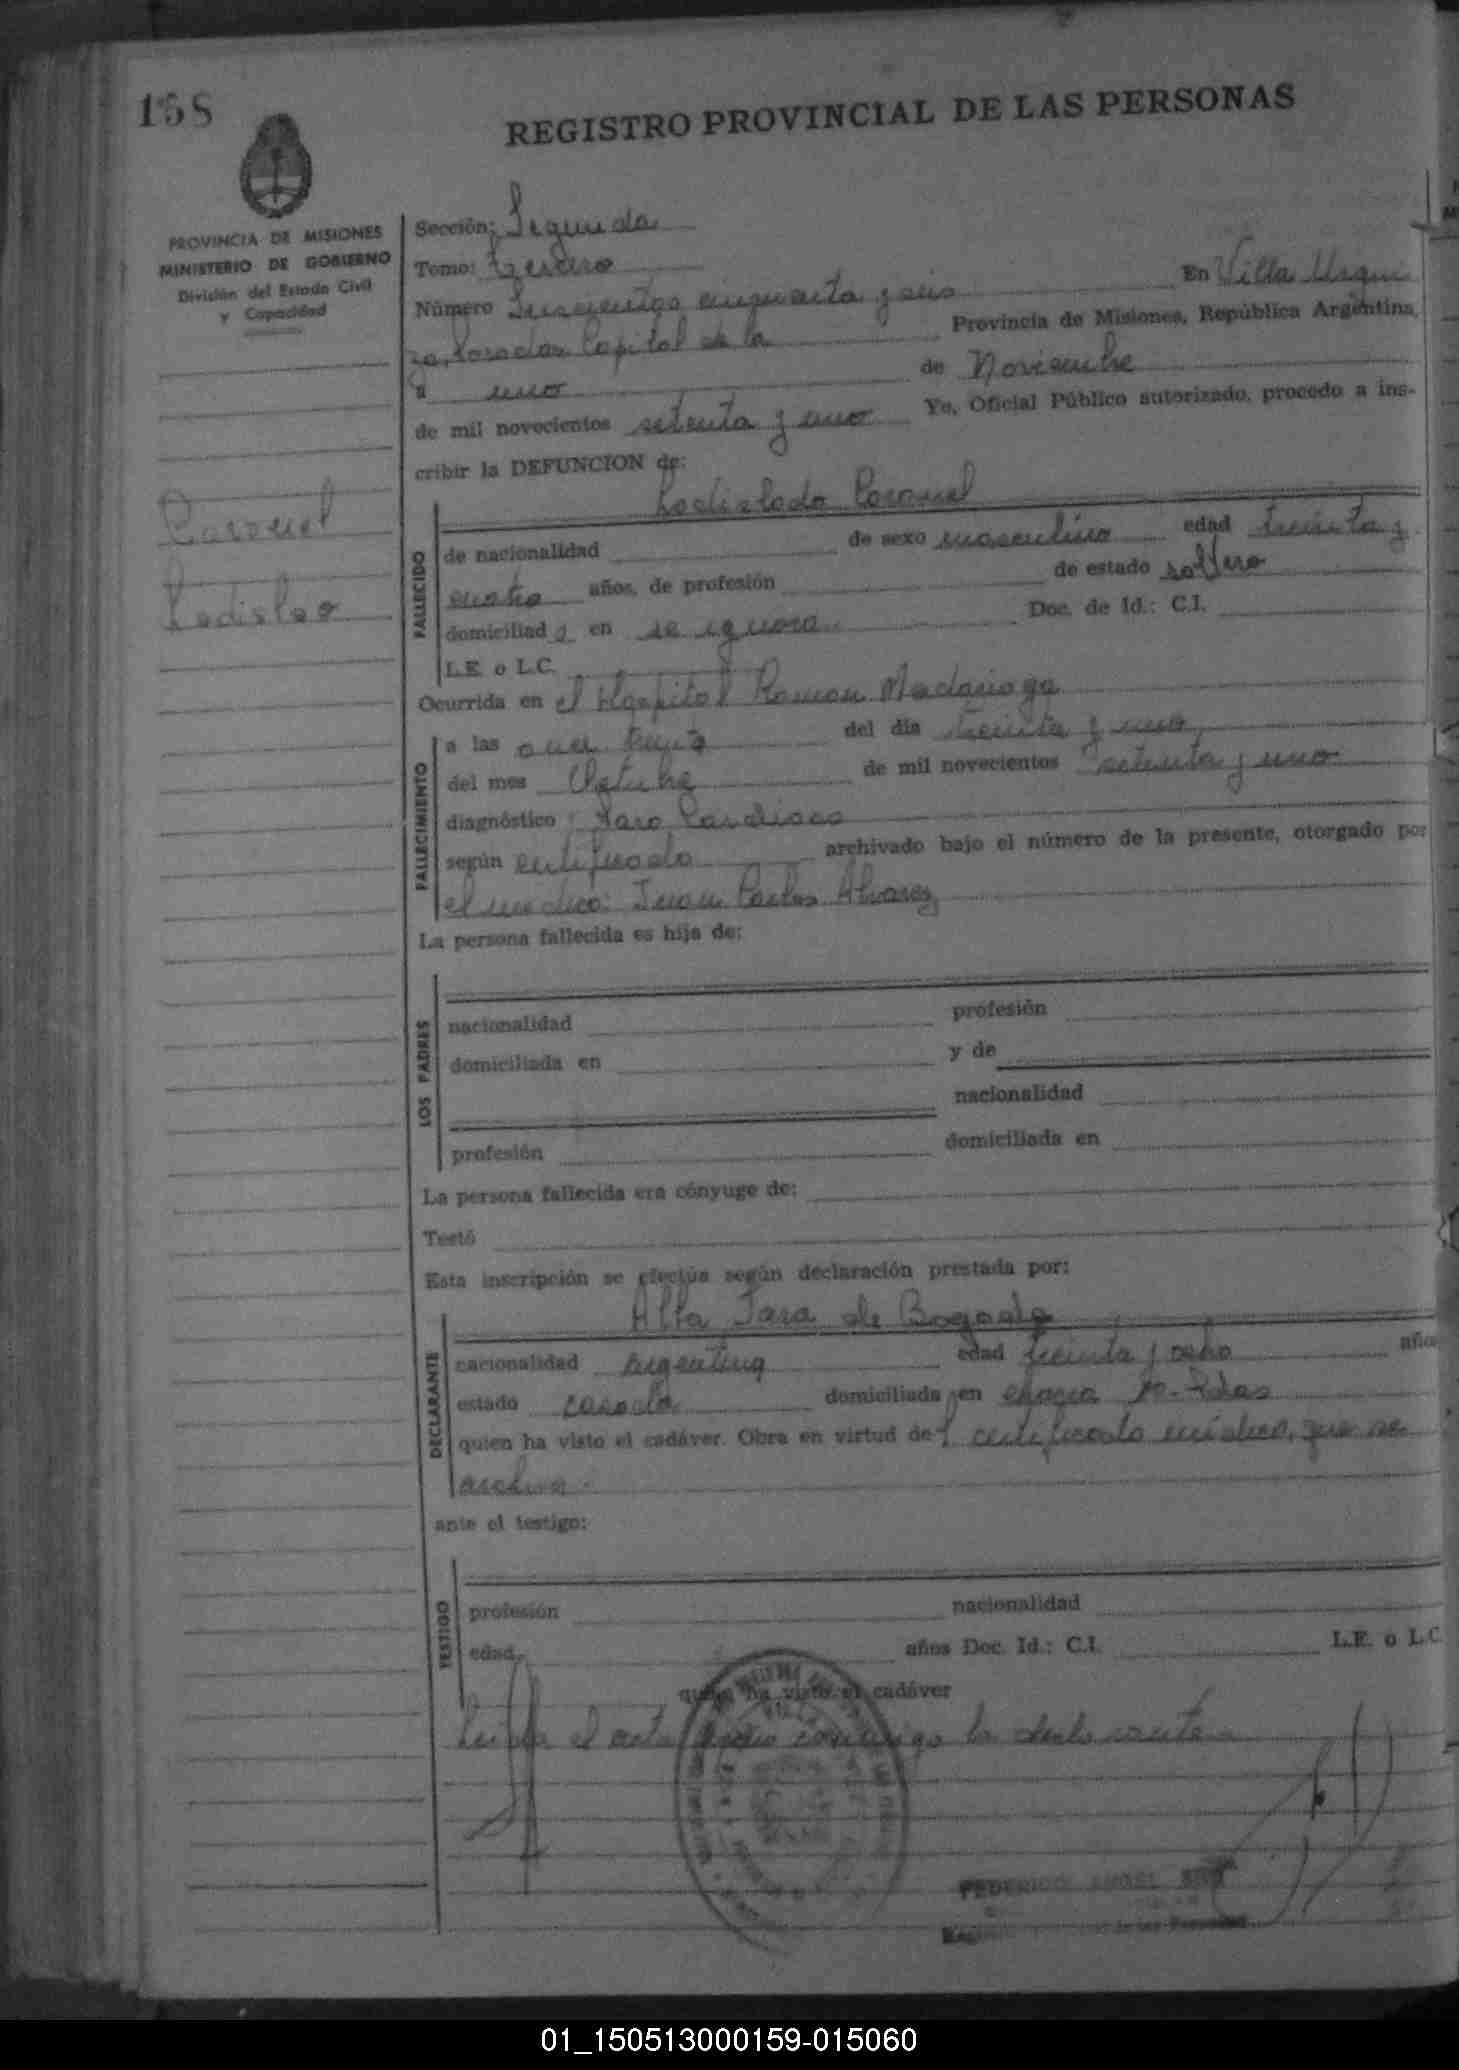 158
REGISTRO PROVINCIAL DE LAS PERSONAS
PROVINCIA DE MISIONES
MINISTERIO DE GOBIERNO
División del Estado Civil
y Capacidad
Caronel
Ladislao
Sección: Segunda
Tomo: Tercero
Número Trescientos cincuenta y seis En Villa Urqui
za, Posadas Capital de la Provincia de Misiones, República Argentina,
a uno de Noviembre
de mil novecientos setenta y uno Yo, Oficial Público autorizado, procedo a ins-
cribir la DEFUNCION de:
Caronel
FALLECIDO
de nacionalidad de sexo masculino edad treinta y
cuatro años, de profesión de estado soltero
domiciliado en se ignora Doc. de Id.: C.I.
L.E. o L.C.
Ocurrida en el Hospital Ramon Madariaga
FALLECIMIENTO
a las once treinta del día treinta y uno
del mes Octubre de mil novecientos setenta y uno
diagnóstico: Paro Cardiaco
según certificado archivado bajo el número de la presente, otorgado por
el medico: Juan Carlos Alvarez
La persona fallecida es hija de:
LOS PADRES
nacionalidad profesión
domiciliada en y de
nacionalidad
profesión domiciliada en
La persona fallecida era cónyuge de:
Testó
Esta inscripción se efectúa según declaración prestada por:
DECLARANTE
Alta Jara de Bogado
nacionalidad Argentina edad treinta y ocho año
estado casada domiciliada en chacra
quien ha visto el cadáver. Obra en virtud del certificado médico, que se
archiva.
ante el testigo:
TESTIGO
profesión nacionalidad
edad años Doc. Id.: C.I. L.E. o L.C.
quien ha visto el cadáver
Leida el acta firma conmigo la declarante
FEDERICO ANGEL
de las Personas
01_150513000159-015060